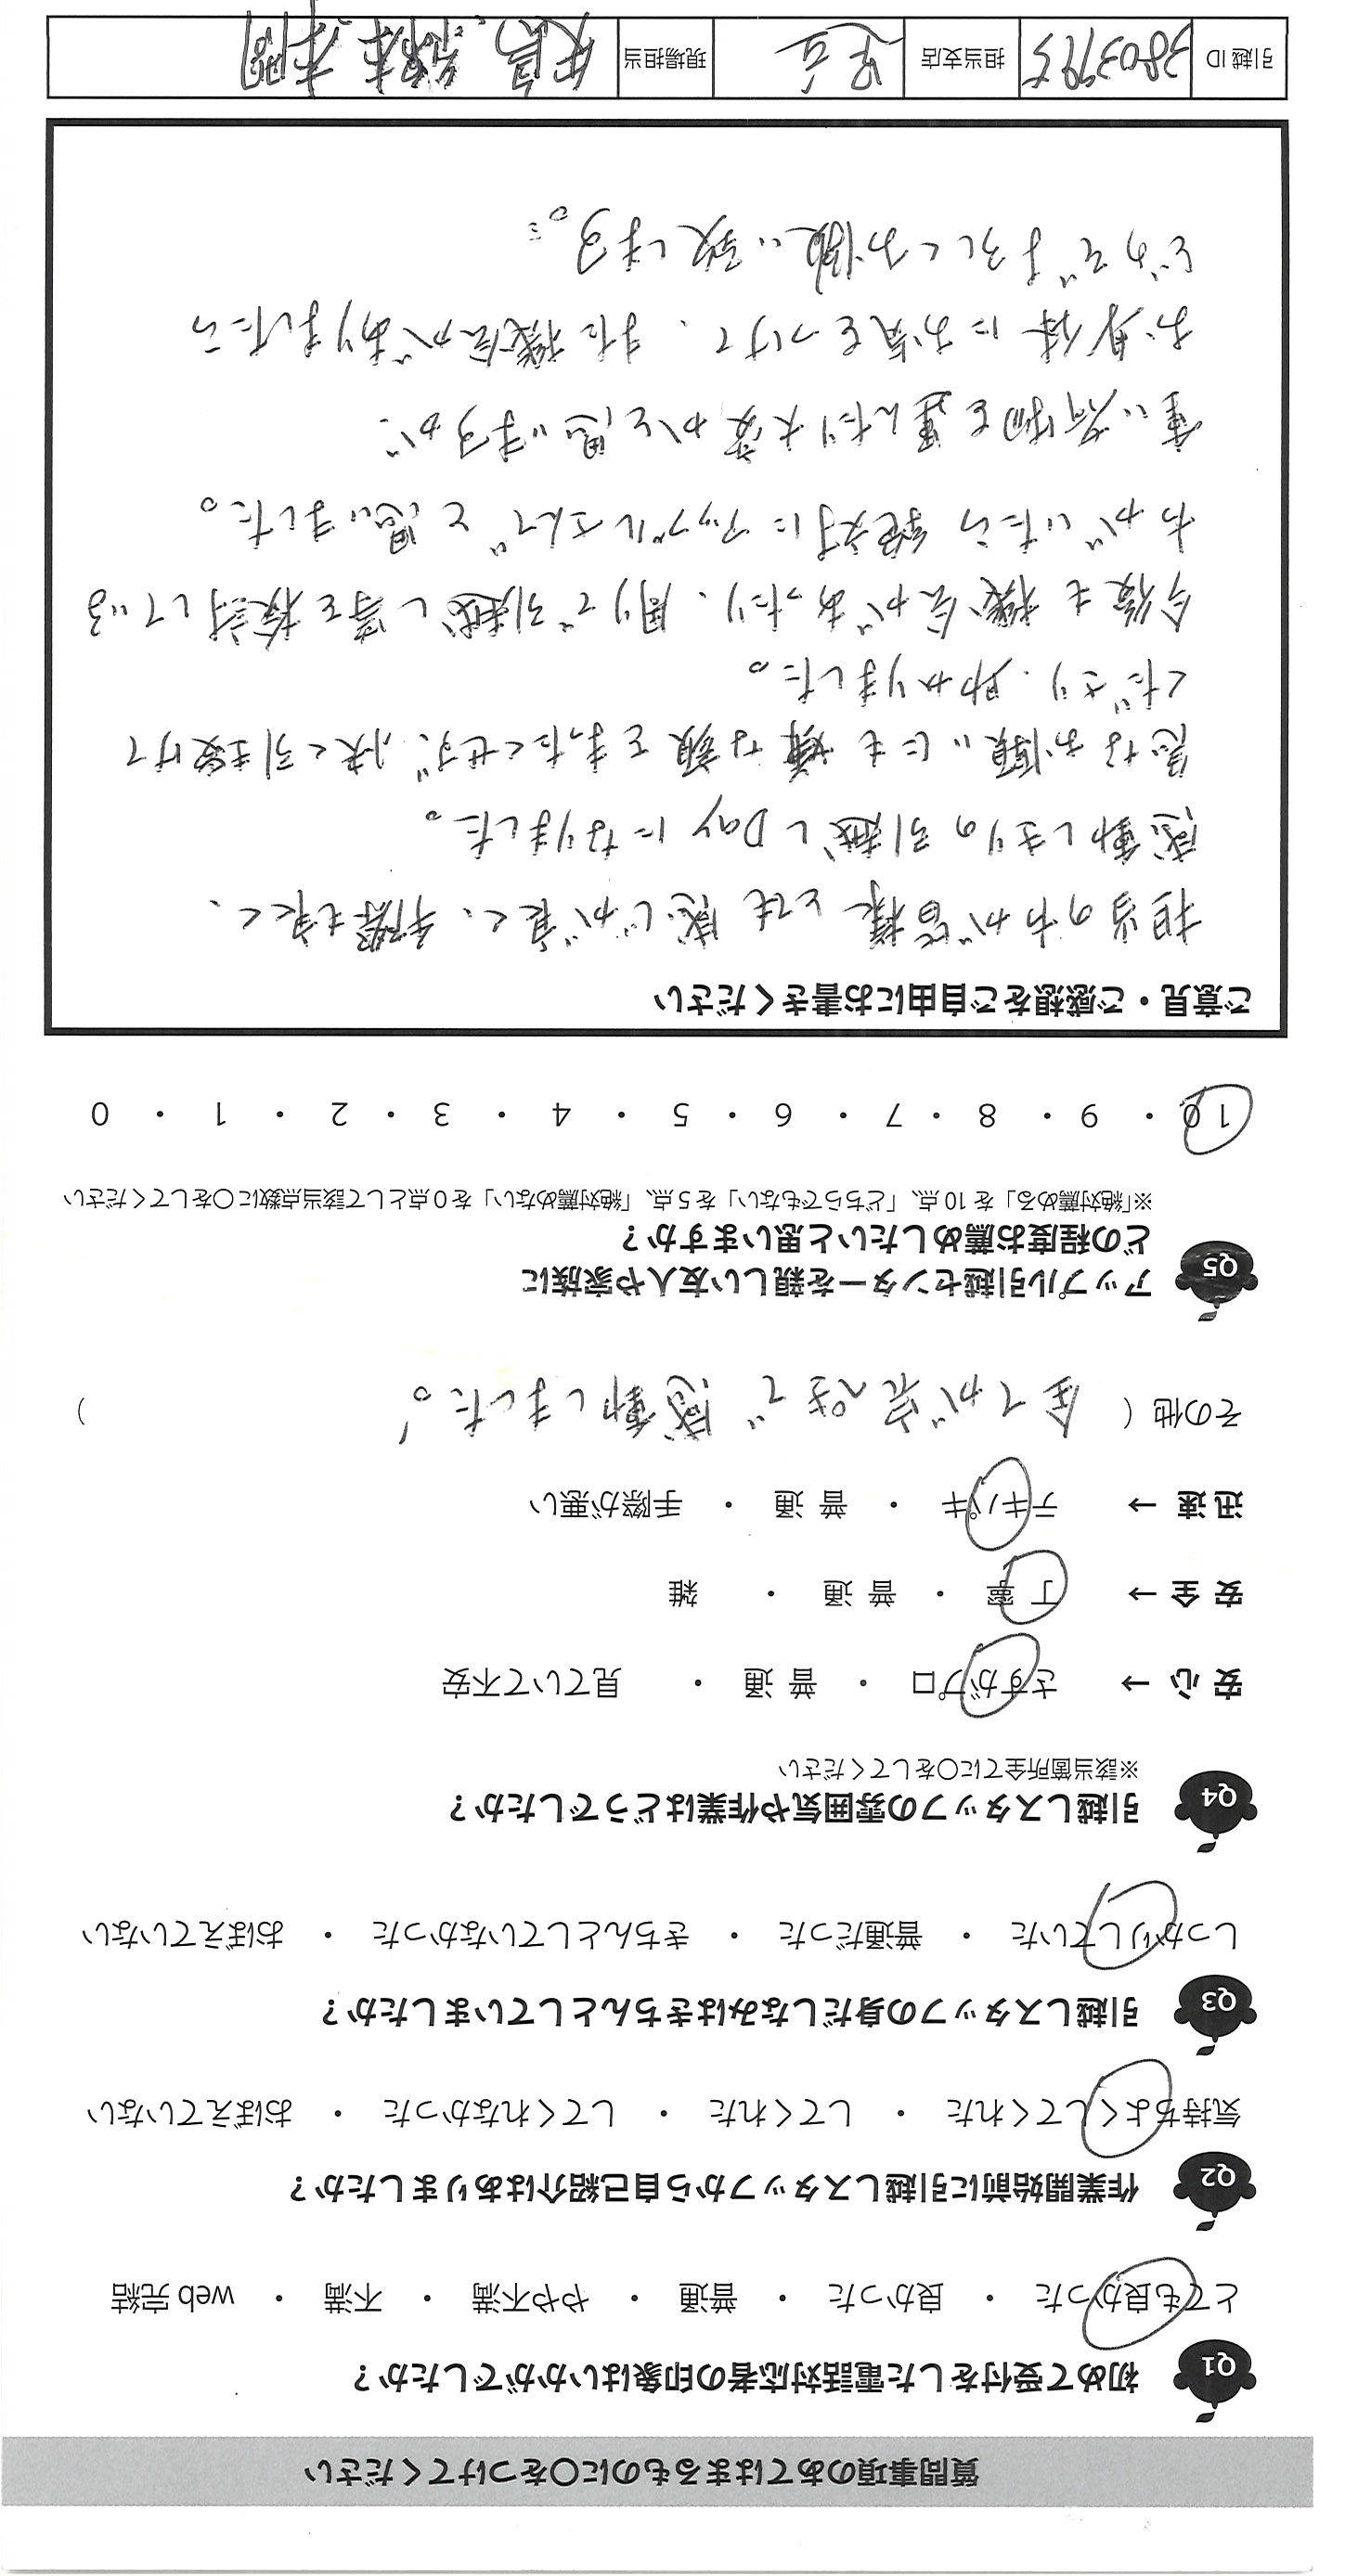 質問事項のあてはまるものに〇をつけてください
Q1 初めて受付をした電話対応者の印象はいかがでしたか？
とても良かった ・ 良かった ・ 普通 ・ やや不満 ・ 不満 ・ web完結
Q2 作業開始前に引越しスタッフから自己紹介はありましたか？
気持ちよくしてくれた ・ してくれた ・ してくれなかった ・ おぼえていない
Q3 引越しスタッフの身だしなみはきちんとしていましたか？
しっかりしていた ・ 普通だった ・ きちんとしていなかった ・ おぼえていない
Q4 引越しスタッフの雰囲気や作業はどうでしたか？
※該当箇所全てに〇をしてください
安心 → さすがプロ ・ 普通 ・ 見ていて不安
安全 → 丁寧 ・ 普通 ・ 雑
迅速 → テキパキ ・ 普通 ・ 手際が悪い
その他（ 全てが完ぺきで感動しました！ ）
Q5 アップル引越センターを親しい友人や家族に
どの程度お薦めしたいと思いますか？
※「絶対薦める」を10点、「どちらでもない」を5点、「絶対薦めない」を0点として該当点数に〇をしてください
10 ・ 9 ・ 8 ・ 7 ・ 6 ・ 5 ・ 4 ・ 3 ・ 2 ・ 1 ・ 0
ご意見・ご感想をご自由にお書きください
担当の方が皆様とても感じが良く、手際も良く、
感動しきりの引越しDayになりました。
急なお願いにも嫌な顔をまったくせず、快く引き受けて
くださり、助かりました。
今後も機会があったり、周りで引越し等を検討している
方がいたら絶対にアップルさんで と思いました。
重い荷物を運んだり大変かと思いますが、
お身体にお気をつけて、また機会がありましたら
どうぞよろしくお願い致します。
引越ID 3803795 担当支店 足立 現場担当 矢島、 本間